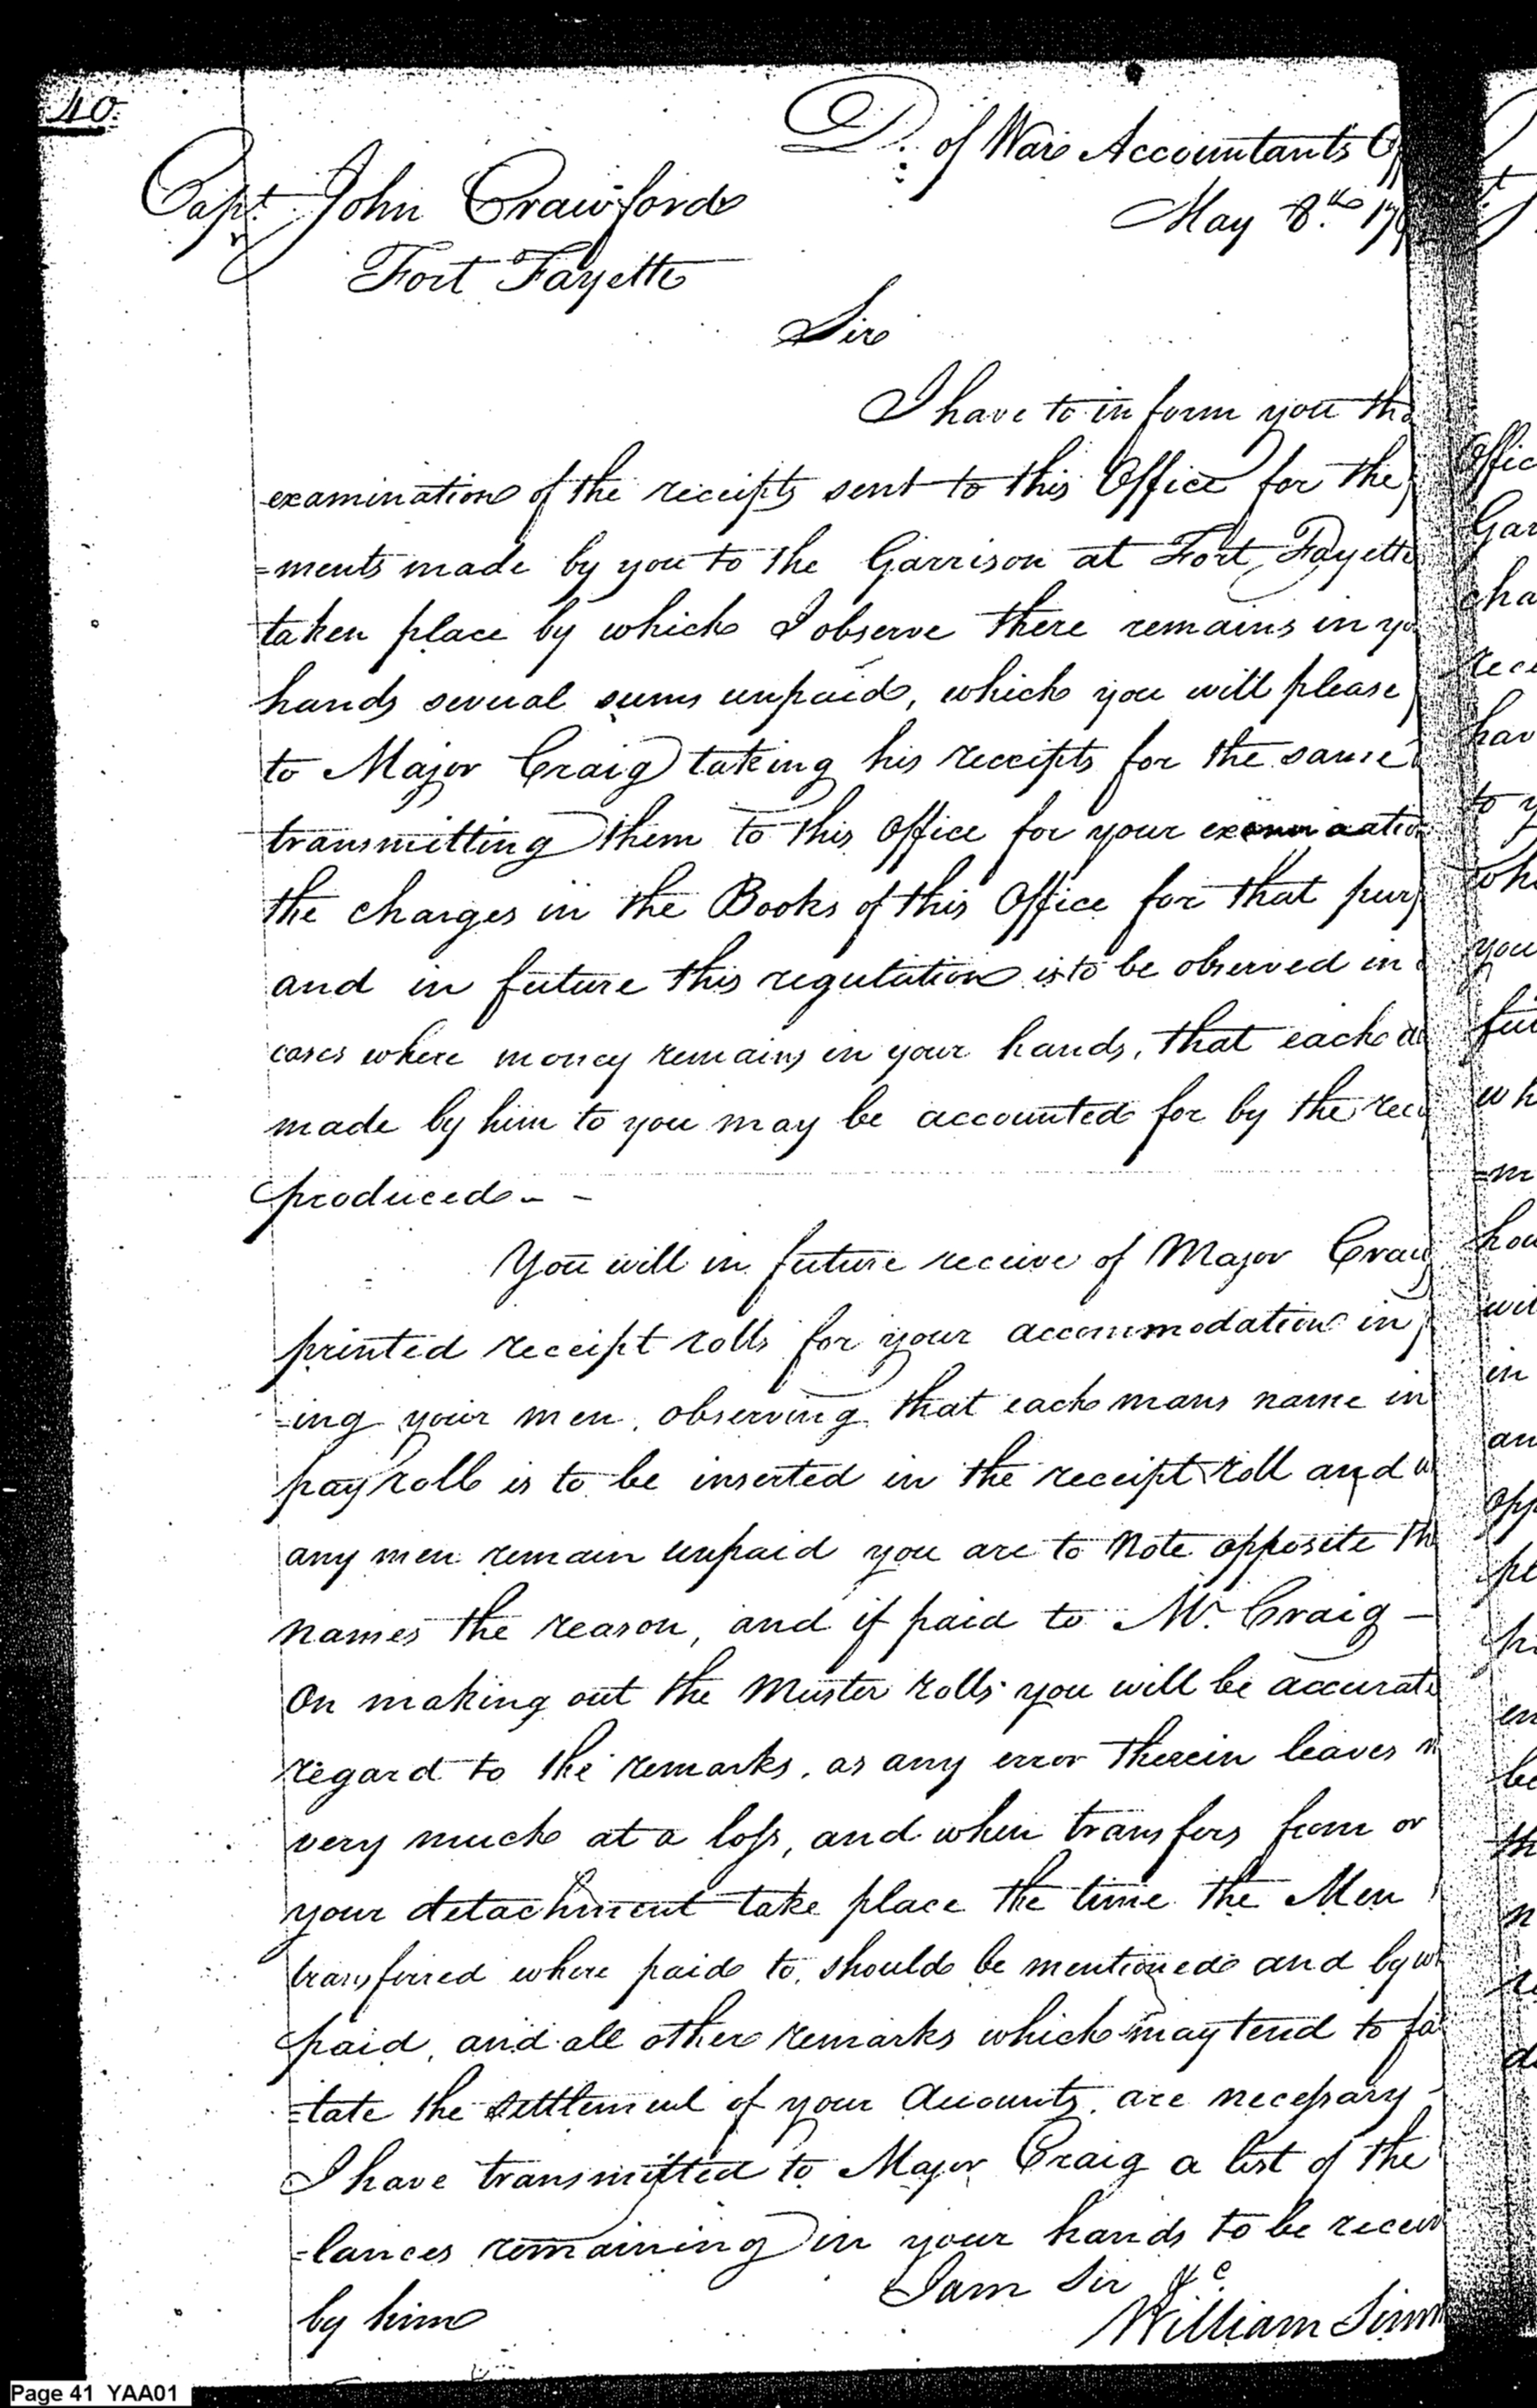 40.
D. of War Accountants O
May 8.th 179
Capt. John Crawford
Fort Fayette
Sir
I have to inform you tha
examination of the receipts sent to this Office for the
=ments made by you to the Garrison at Fort Fayette
taken place by which I observe there remains in yo
hands several sums unpaid, which you will please
to Major Craig taking his receipts for the same
transmitting them to this Office for your examination
the charges in the Books of this Office for that purp
and in future this regulation is to be observed in
cases where money remains in your hands, that each
made by him to you may be accounted for by the rec
produced - -
You will in future receive of Major Craig
printed receipt rolls for your accommodation in
=ing your men, observing that each mans name in
pay roll is to be inserted in the receipt roll and
any men remain unpaid you are to Note opposite th
names the reason, and if paid to Mr. Craig —
On making out the Muster rolls you will be accurate
regard to the remarks, as any error therein leaves
very much at a loss, and when transfers from or
your detachment take place the time the Men
transferred where paid to, should be mentioned and by wh
paid, and all other remarks which may tend to fa
=tate the settlement of your Accounts, are necessary -
I have transmitted to Major Craig a list of the
=lances remaining in your hands to be receiv
by him
I am Sir &c.
William Simm
Offic
Gar
cha
rece
hav
to y
who
you
fut
wh
=m
how
wil
in
an
opp
en
be
th
Page 41 YAA01